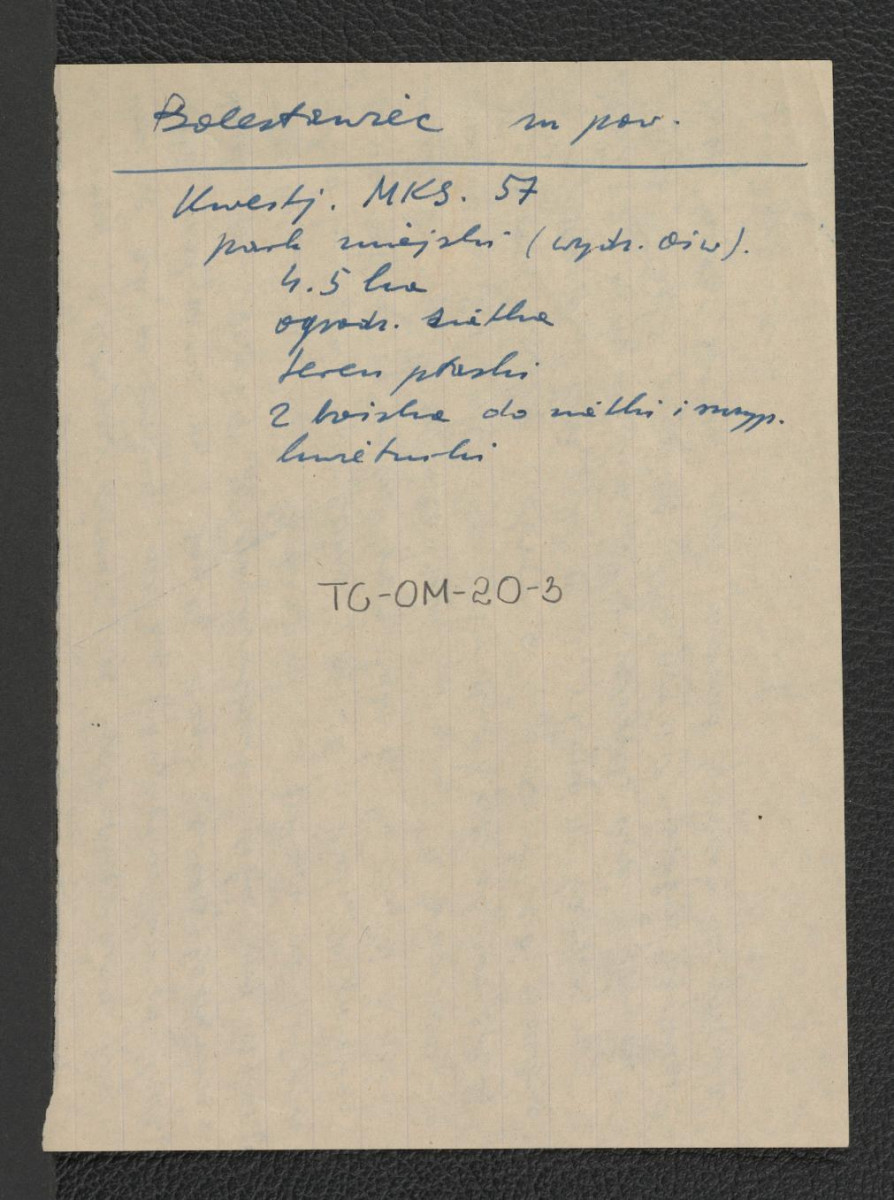 Bolesławiec m pow.
Kwestj. MKS. 57
park miejski (wydz. Ośw).
4.5 ha
ogrodz. siatka
teren płaski
2 boiska do siatki i
kwietniki
TG-OM-20-3